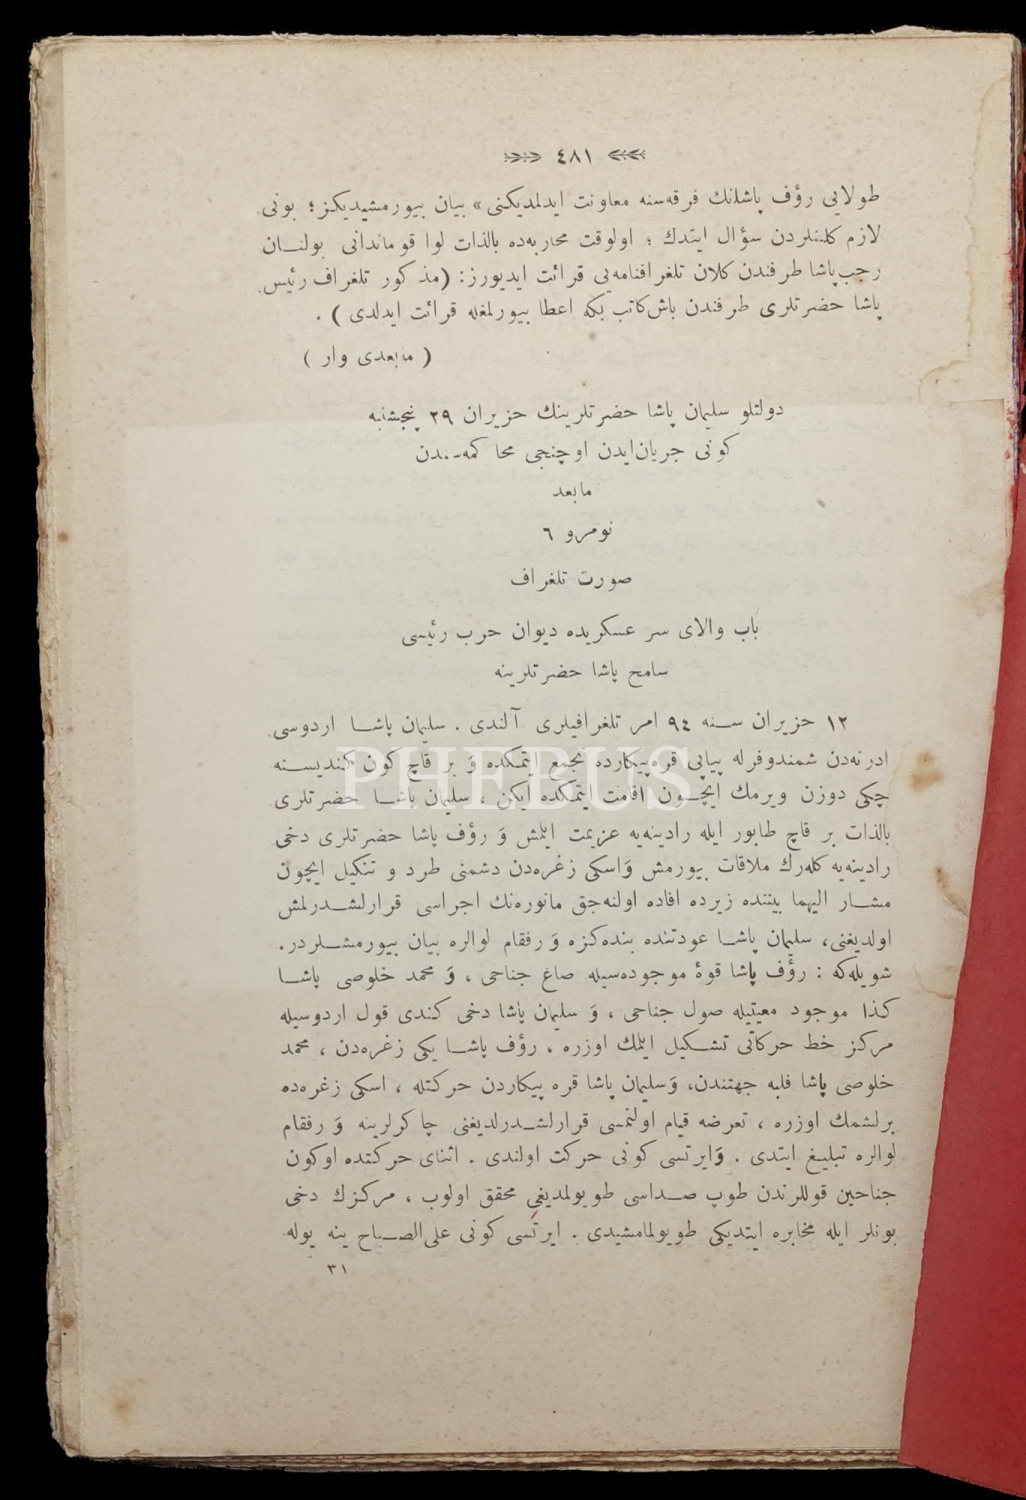 ٤٨١
طولایی رؤف پاشانك فرقه‌سنه معاونت ایدلمدیكنی» بیان بیورمشیدیكز؛ بونی
لازم كلنلردن سؤال ایتدك ؛ اولوقت محاربه‌ده بالذات لوا قوماندانی بولنــان
رجب‌پاشا طرفندن كلان تلغرافنامه‌یی قرائت ایدیورز: (مذكور تلغراف رئیس
پاشا حضرتلری طرفندن باش‌كاتب بكه اعطا بیورلمغله قرائت ایدلدی ) .
( مابعدی وار )
دولتلو سلیمان پاشا حضرتلرینك حزیران ٢٩ پنجشنبه
كونی جریان‌ایدن اوچنجی محاكمه‌سندن
مابعد
نومرو ٦
صورت تلغراف
باب والای سر عسكریده دیوان حرب رئیسی
سامح پاشا حضرتلرینه
١٢ حزیران ســنه ٩٤ امر تلغرافیلری آلندی . سلیمان پاشــا اردوسی
ادرنه‌دن شمندوفرله پیاپی قره‌پیكارده تجمع ایتمكده وَ بر قاچ كون كندیســنه
چكی دوزن ویرمك ایچــون اقامت ایتمكده ایكن ، سلیمان پاشــا حضرتلری
بالذات بر قاچ طابور ایله رادینه‌یه عزیمت ایلمش وَ رؤف پاشا حضرتلری دخی
رادینه‌یه كله‌رك ملاقات بیورمش وَاسكی زغره‌دن دشمنی طرد و تنكیل ایچون
مشــار الیهما بیننده زیرده افاده اولنه‌جق مانوره‌نك اجراسی قرارلشــدرلمش
اولدیغنی، سلیمان پاشــا عودتنده بنده‌كزه وَ رفقام لوالره بیان بیورمشــلردر.
شویله‌كه : رؤف پاشا قوهٔ موجوده‌سیله صاغ جناحی ، وَ محمد خلوصی پاشــا
كذا موجود معیتیله صول جناحی ، وَ سلیمان پاشا دخی كندی قول اردوسیله
مركز خط حركاتی تشــكیل ایلمك اوزره ، رؤف پاشــا یكی زغره‌دن ، محمد
خلوصی پاشا فلبه جهتندن، وَسلیمان پاشا قره پیكاردن حركتله ، اسكی زغره‌ده
برلشمك اوزره ، تعرضه قیام اولنمسی قرارلشــدرلدیغنی چاكرلرینه وَ رفقام
لوالره تبلیغ ایتدی . وَایرتسی كونی حركت اولندی . اثنای حركتده اوكون
جناحین قوللرندن طوپ صــداسی طویولمدیغی محقق اولوب ، مركزك دخی
بونلر ایله مخابره ایتدیكی طویولمامشیدی . ایرتسی كونی علی‌الصــباح ینه یوله
٣١
PHEBUS